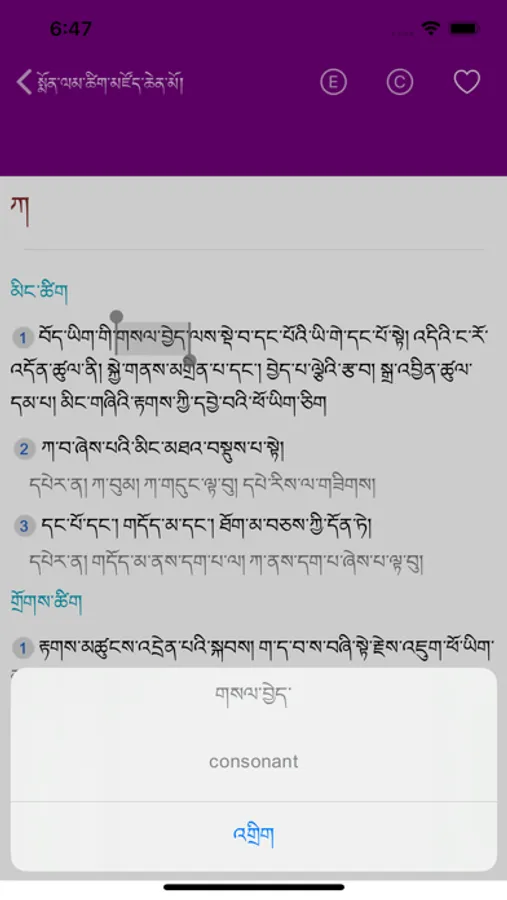 6:47
སྨོན་ལམ་ཚིག་མཛོད་ཆེན་མོ།
E
C
ཀ
མིང་ཚིག
1 བོད་ཡིག་གི་གསལ་བྱེད་ལས་སྡེ་བ་དང་པོའི་ཡི་གེ་དང་པོ་སྟེ། འདིའི་ང་རོ་
འདོན་ཚུལ་ནི། སྐྱེ་གནས་མགྲིན་པ་དང་། བྱེད་པ་ལྕེའི་རྩ་བ། སྒྲ་འབྱིན་ཚུལ་
དམ་པ། མིང་གཞིའི་རྟགས་ཀྱི་དབྱེ་བའི་ཕོ་ཡིག་ཅིག
2 ཀ་བ་ཞེས་པའི་མིང་མཐའ་བསྡུས་པ་སྟེ།
དཔེར་ན། ཀ་བུམ། ཀ་གདུང་ལྟ་བུ། དཔེ་རིས་ལ་གཟིགས།
3 དང་པོ་དང་། གདོད་མ་དང་། ཐོག་མ་བཅས་ཀྱི་དོན་ཏེ།
དཔེར་ན། གདོད་མ་ནས་དག་པ་ལ། ཀ་ནས་དག་པ་ཞེས་པ་ལྟ་བུ།
གྲོགས་ཚིག
1 རྟགས་མཚུངས་འདྲེན་པའི་སྐབས། ག་ད་བ་ས་བཞི་སྟེ་རྗེས་འཇུག་ཕོ་ཡིག་
གསལ་བྱེད་
consonant
འགྲིག